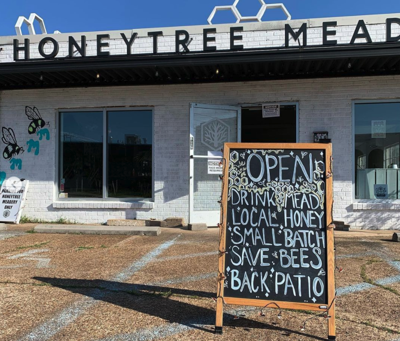 HONEYTREE MEAD
OPEN
DRINK MEAD
LOCAL HONEY
SMALL BATCH
SAVE BEES
BACK PATIO
HONEYTREE
MEADERY
ONLY